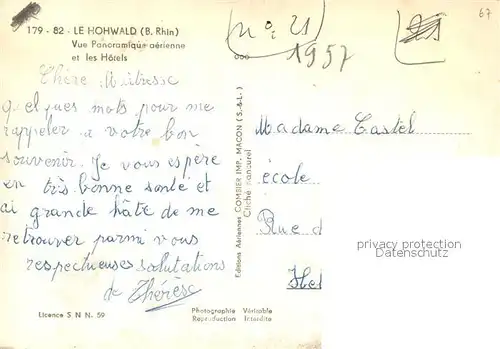 179 - 82 - LE HOHWALD (B. Rhin)
Vue Panoramique aérienne
et les Hôtels
(n°: 21
1957
67
Chère Maîtresse
quelques mots pour me
rappeler a votre bon
souvenir. Je vous espère
en très bonne santé et
ai grande hâte de me
retrouver parmi vous
respectueuses salutations
de Thérèse
Licence S N N. 59
Photographie Véritable
Reproduction Interdite
Editions Aériennes COMBIER IMP. MACON (S.-&-L.)
Cliché
Madame Castel
école
Rue d
privacy protection
Datenschutz